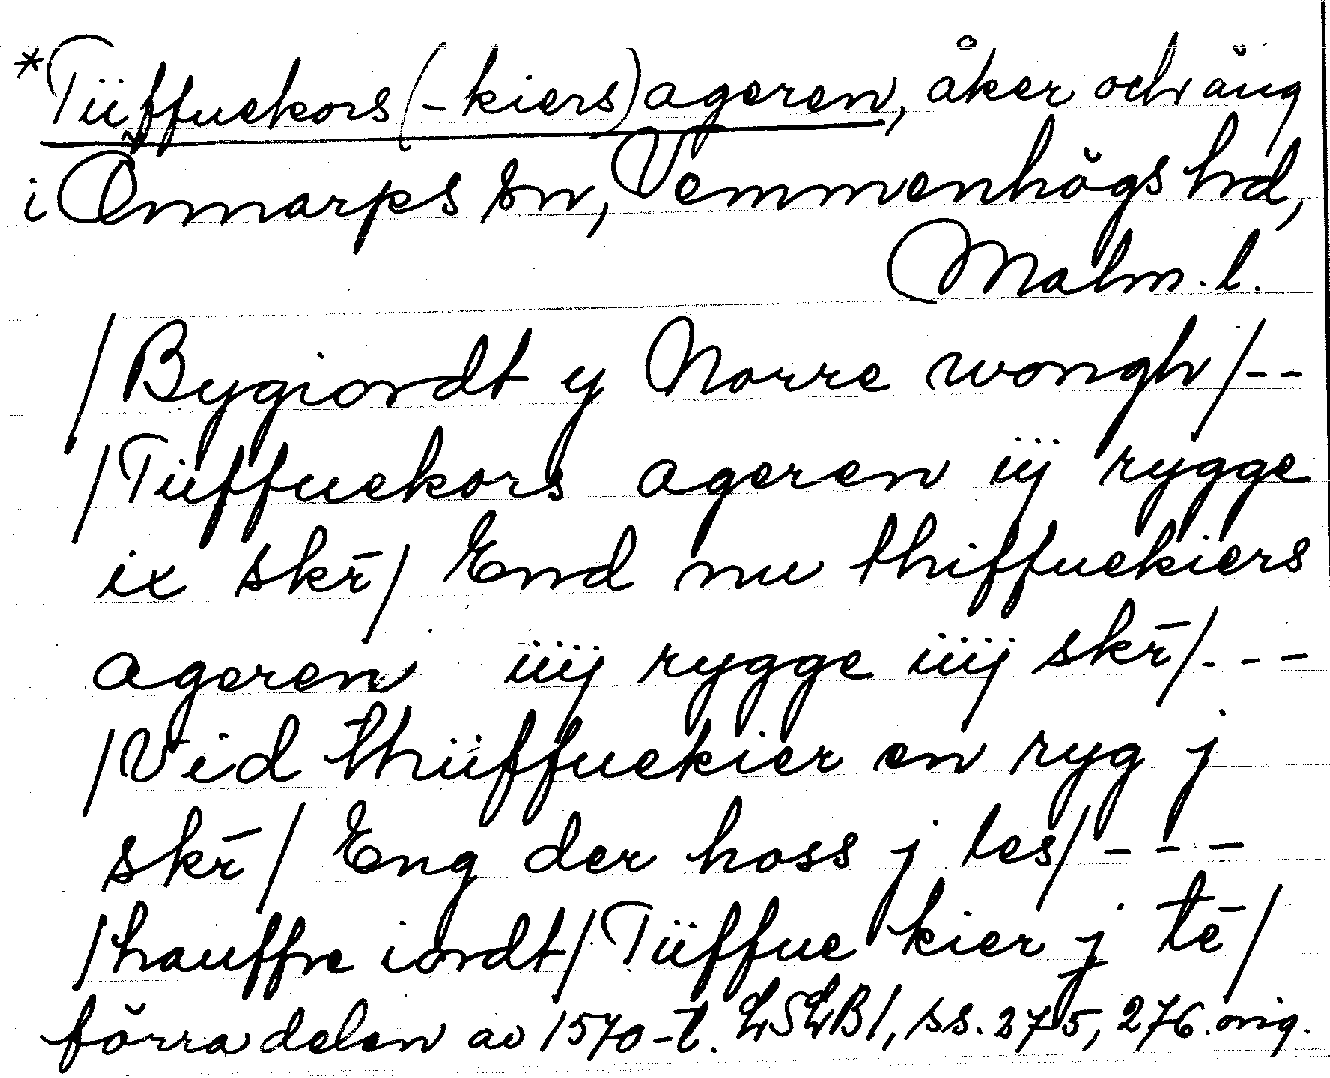 *Tüffuekors(-kiers)ageren, åker och äng
i Önnarps sn, Vemmenhögs hd,
Malm. l.
/Bygiordt y Norre wongh/--
/Tüffuekors ageren iij rygge
ix skr̄/ End nu thiffuekiers
ageren iiij rygge iiij skr̄/---
/Vid thüffuekier en ryg j
skr̄/ Eng der hoss j les/---
/hauffre iordt/Tüffue kier j tē/
förra delen av 1570-t. LSLB1, ss. 275, 276. orig.